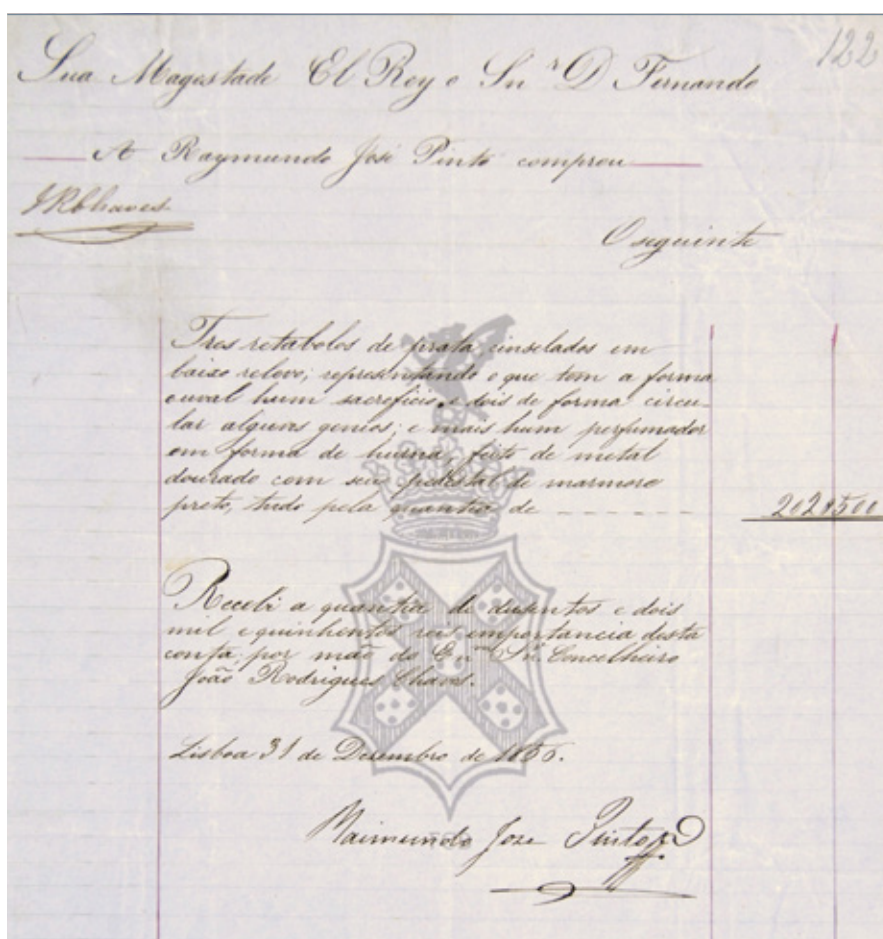 122
Sua Magestade El Rey o Snr D Fernando
A Raymundo José Pinto comprou
JRChaves
O seguinte
Tres retabolos de prata, cinselados em
baixo relevo; representando o que tem a forma
ouval hum sacreficio, e dois de forma circu-
lar alguns genios; e mais hum perfumador
em forma de hurna, feito de metal
dourado com seu pedestal de marmore
preto, tudo pela quantia de
202$500
Recebi a quantia de dusentos e dois
mil e quinhentos reis emportancia desta
conta, por mão do Snr. Concelheiro
João Rodrigues Chaves.
Lisboa 31 de Desembro de
Raimundo Joze Pinto